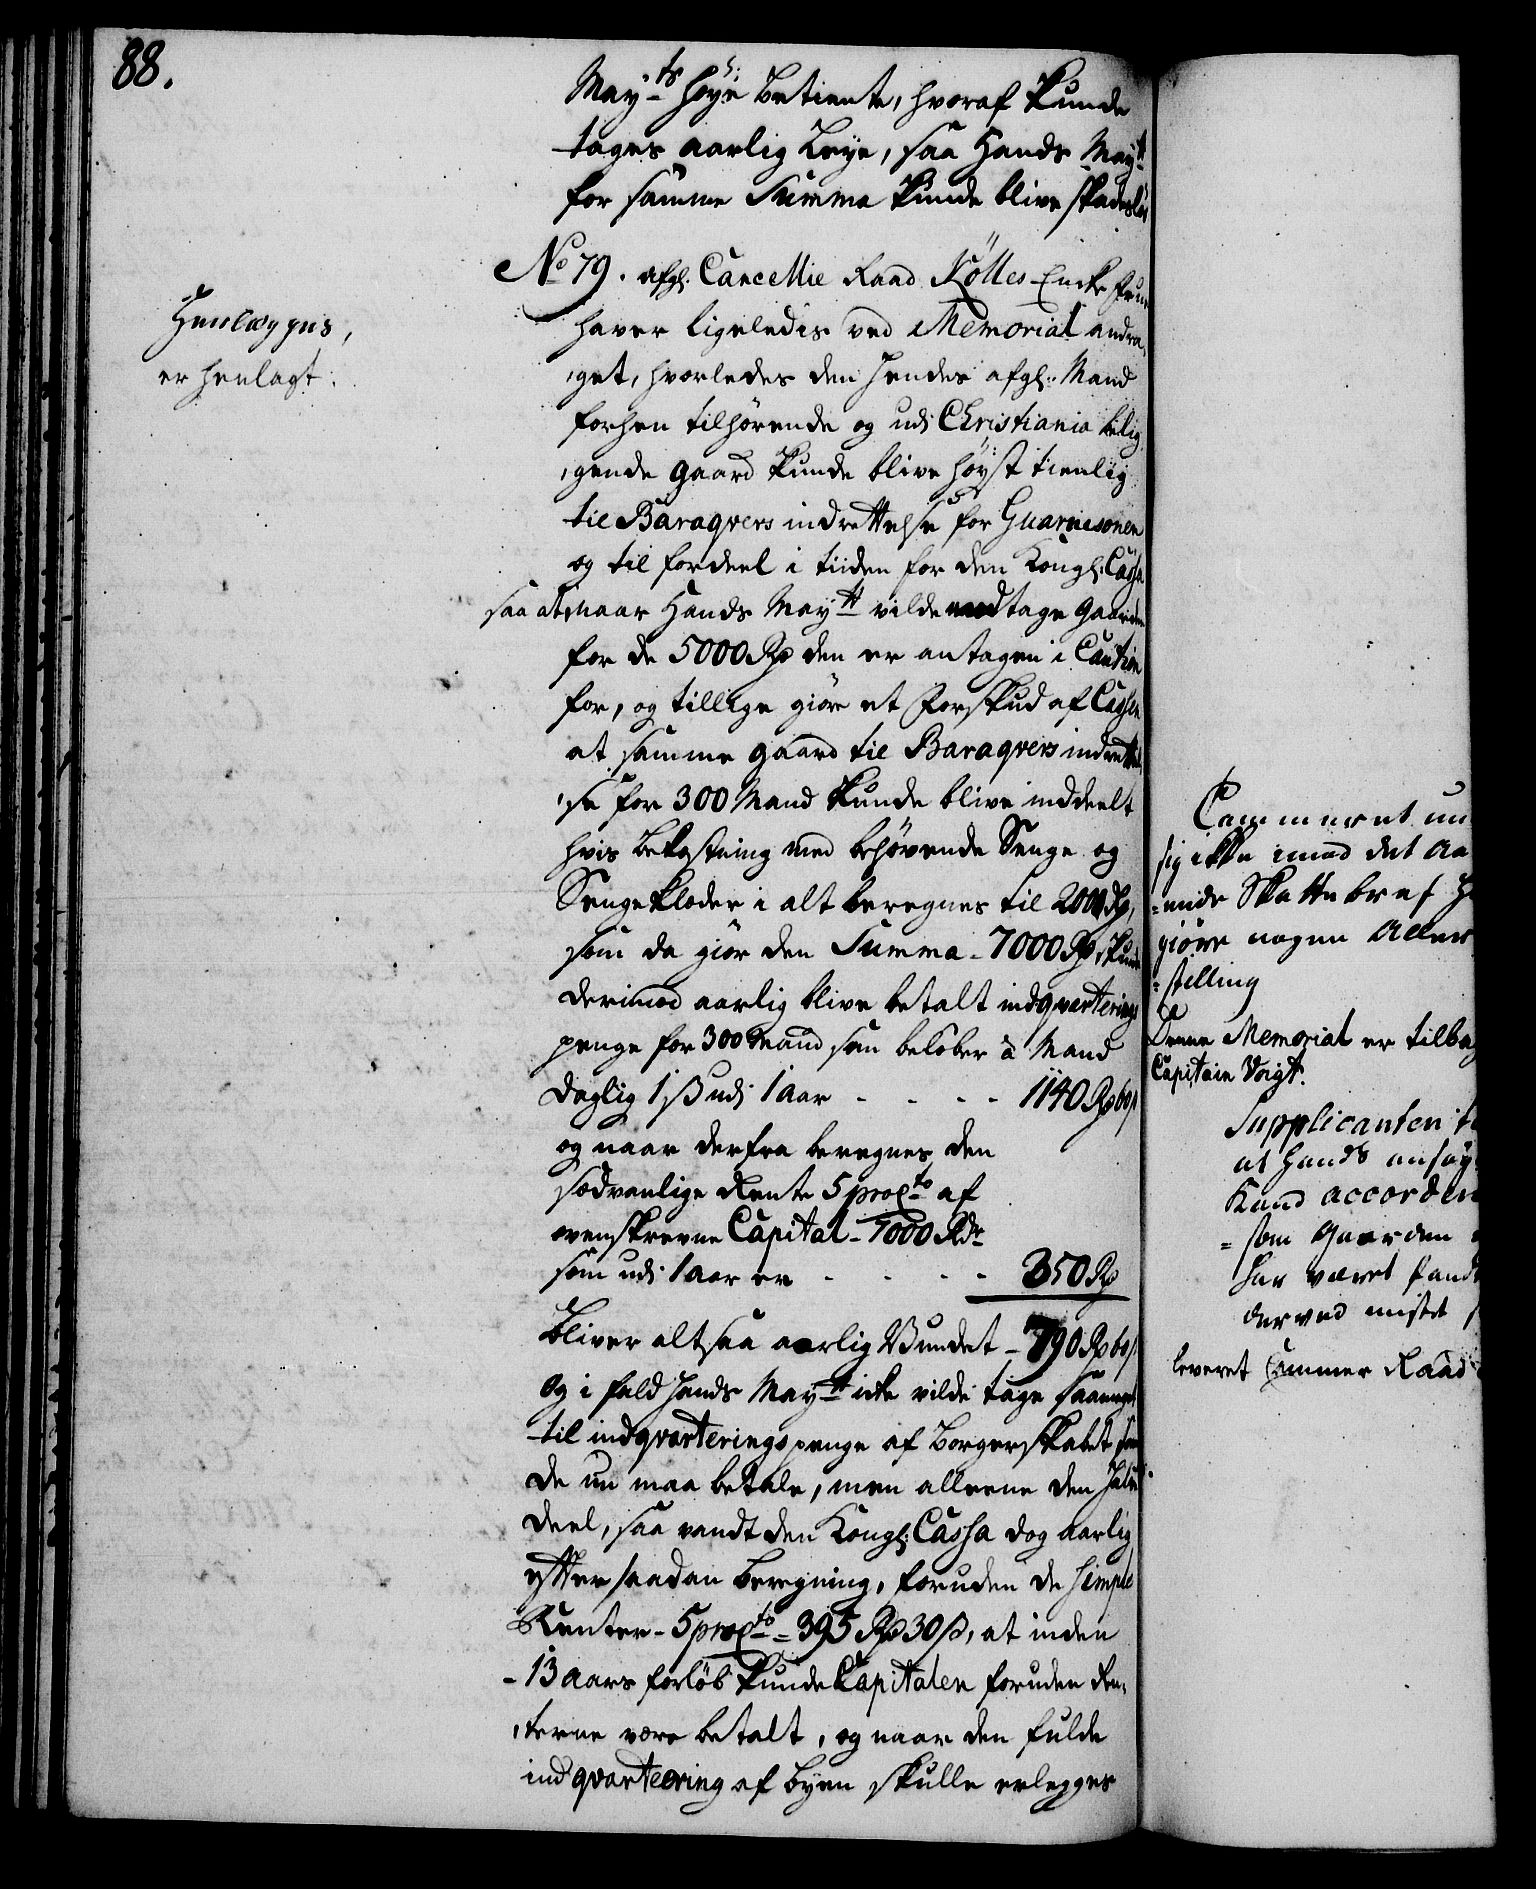 88.
May:ts høye betiente, hvoraf kunde
tages aarlig Leye, saa Hands May:tt
for samme Summa kunde blive skadesløs
No 79. afgl. Cancellie Raad Kølles Encke frue
haver ligeledes ved Memorial andra-
get, hvorledes den hendes afgl: Mand
forhen tilhørende og udi Christiania belig
gende gaard kunde blive høyst tienlig
til Baraqvers indrettelse for Guarnisonen
og til fordeel i tiiden for den Kongl: Cassa
saa at naar Hands May:tt vilde modtage gaarden
for de 5000 Rd den er antagen i Caution
for, og tillige giøre et Forskud af Cassen
at samme gaard til Baraqvers indrettel-
se for 300 Mand kunde blive inddeelt
hvis bekostning med behøvende Senge og
Sengeklæder i alt beregnes til 2000 Rd,
som da giør den Summa - 7000 Rd, kunde
derimod aarlig blive betalt indqvarterings
penge for 300 Mand som beløber à Mand
daglig 1 ß udi 1 aar - - - - 1140 Rd 60 ß
og naar derfra beregnes den
sædvanlige Rente 5 proCto af
ovenskrevne Capital - 7000 Rdr
som udi 1 aar er - - - - 350 Rd
bliver altsaa aarlig Vundet - 790 Rd 60 ß
Og i fald Hands May:tt icke vilde tage saameget
til indqvarteringspenge af borgerskabet som
de nu maa betale, men alleene den halve
deel, saa vandt den Kongl: Cassa dog aarlig
efter saadan beregning, foruden de simple
Renter - 5 proCto = 395 Rd 30 ß, at inden
- 13 aars forløb kunde Capitalen foruden Ren-
terne være betalt, og naar den fulde
indqvarteering af byen skulle erlegges
Henlægges,
er henlagt.
Cammeret un
sig ikke imod det an
ende Skattebref
giøre nogen Aller
stilling
Denne Memorial er tilbag
Capitain Voigt.
Supplicanten
at hands ansøg
Kand accordere
som gaarden
har været pandt
derved mistet
leveret Cammer Raad